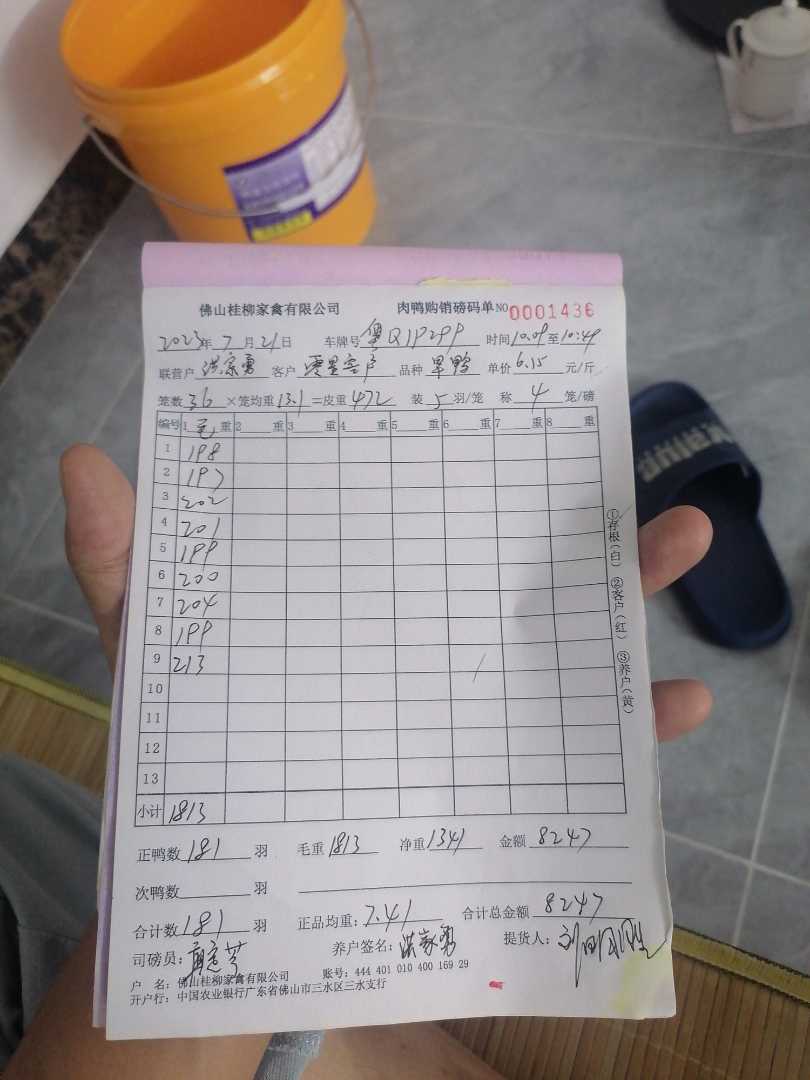 佛山桂柳家禽有限公司 肉鸭购销磅码单 NO 0001436
2023年 7 月 21 日 车牌号 粤Q1P299 时间 10:09 至 10:49
联营户 洪家勇 客户 零星客户 品种 单价 6.15 元/斤
笼数 36 ×笼均重 13.1 =皮重 472 装 5 羽/笼 称 4 笼/磅
编号 1 毛 重 2 重 3 重 4 重 5 重 6 重 7 重 8 重
1 198
2 197
3 202
4 201
5 199
6 200
7 204
8 199
9 213
10
11
12
13
小计 1813
①存根(白) ②客户(红) ③养户(黄)
正鸭数 181 羽 毛重 1813 净重 1341 金额 8247
次鸭数 羽
合计数 181 羽 正品均重: 7.41 合计总金额 8247
司磅员: 养户签名: 洪家勇 提货人:
户 名: 佛山桂柳家禽有限公司 账号: 444 401 010 400 169 29
开户行: 中国农业银行广东省佛山市三水区三水支行